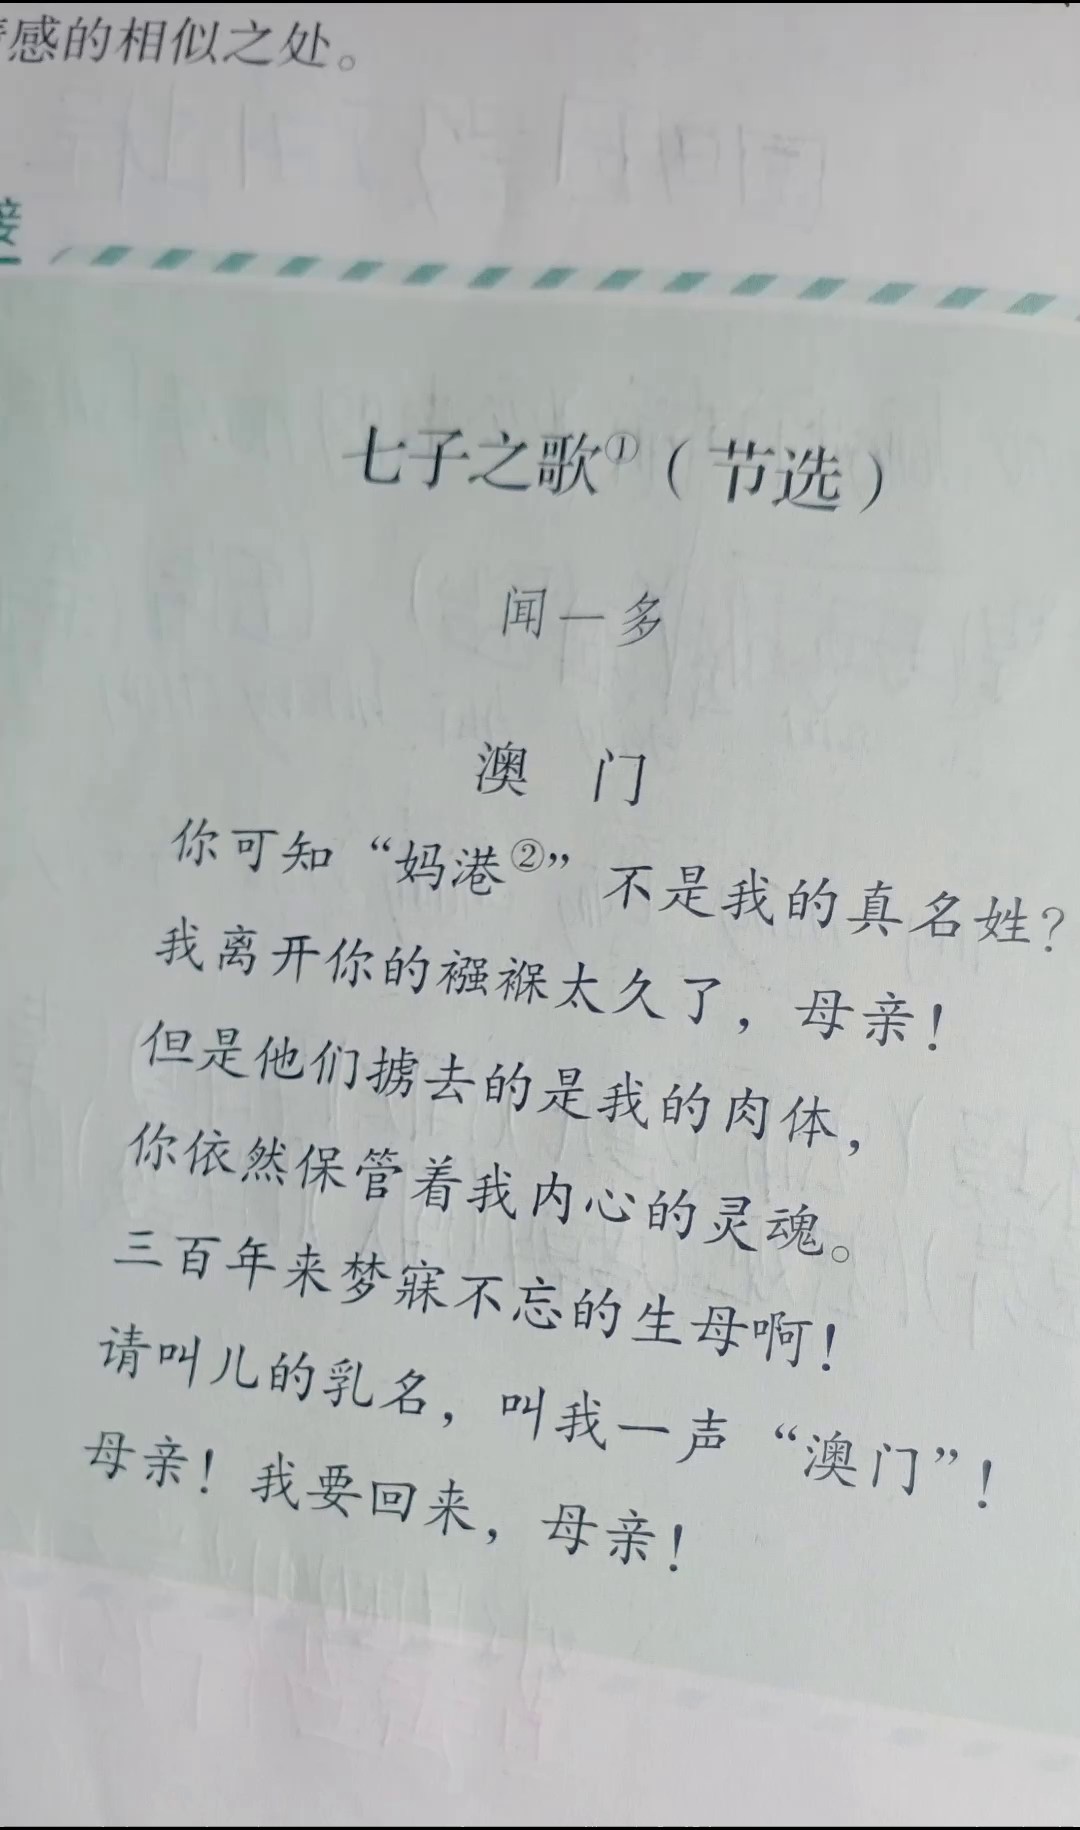 感的相似之处。
接
七子之歌①（节选）
闻一多
澳 门
你可知“妈港②”不是我的真名姓？
我离开你的襁褓太久了，母亲！
但是他们掳去的是我的肉体，
你依然保管着我内心的灵魂。
三百年来梦寐不忘的生母啊！
请叫儿的乳名，叫我一声“澳门”！
母亲！我要回来，母亲！